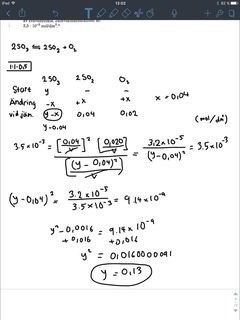 13:02
2SO₃ ⇌ 2SO₂ + O₂
2SO₃ 2SO₂ O₂
Start y - -
Ändring -x +x +x x = 0,04
vid jän. y-x 0,04 0,02
y-0,04 (mol/dm³)
3.5×10⁻³ = [0,04]² [0,020] / (y-0,04)² = 3.2×10⁻⁵ / (y-0,04)² = 3.5×10⁻³
(y-0,04)² = 3.2×10⁻⁵ / 3.5×10⁻³ = 9.14×10⁻⁹
y² - 0,0016 = 9.14×10⁻⁹
+0,016 +0,016
y² = 0,0160000091
y = 0,13